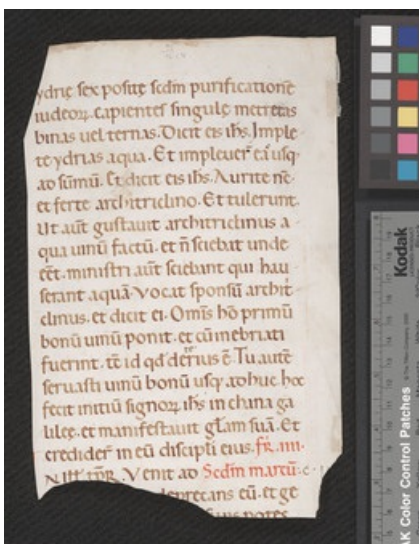 ydrię sex positę scdm purificationē
iudeoꝝ. capientes singulę metretas
binas uel ternas. Dicit eis ihs. Imple
te ydrias aqua. Et impleuer̄ eas usq;
ad summū. Et dicit eis ihs. Aurite nc̄
et ferte architriclino. Et tulerunt.
Ut aūt gustauit architriclinus a
qua uinū factū. et n̄ sciebat unde
eēt. ministri aūt sciebant qui hau
serant aquā. Vocat sponsū archit
clinus. et dicit ei. Omīs hō primū
bonū uinū ponit. et cū inebriati
fuerint. tē id qd deterius ē. Tu autē
seruasti uinū bonū usq; adhuc. hoc
fecit initiū signoꝝ ihs in chana ga
lileę. et manifestauit glam suā. Et
credider̄ in eū discipli eius. fr̄. iiii.
Venit ad Scdm marcū.
deprecans eū. et ge
potes
Kodak
AK Color Control Patches